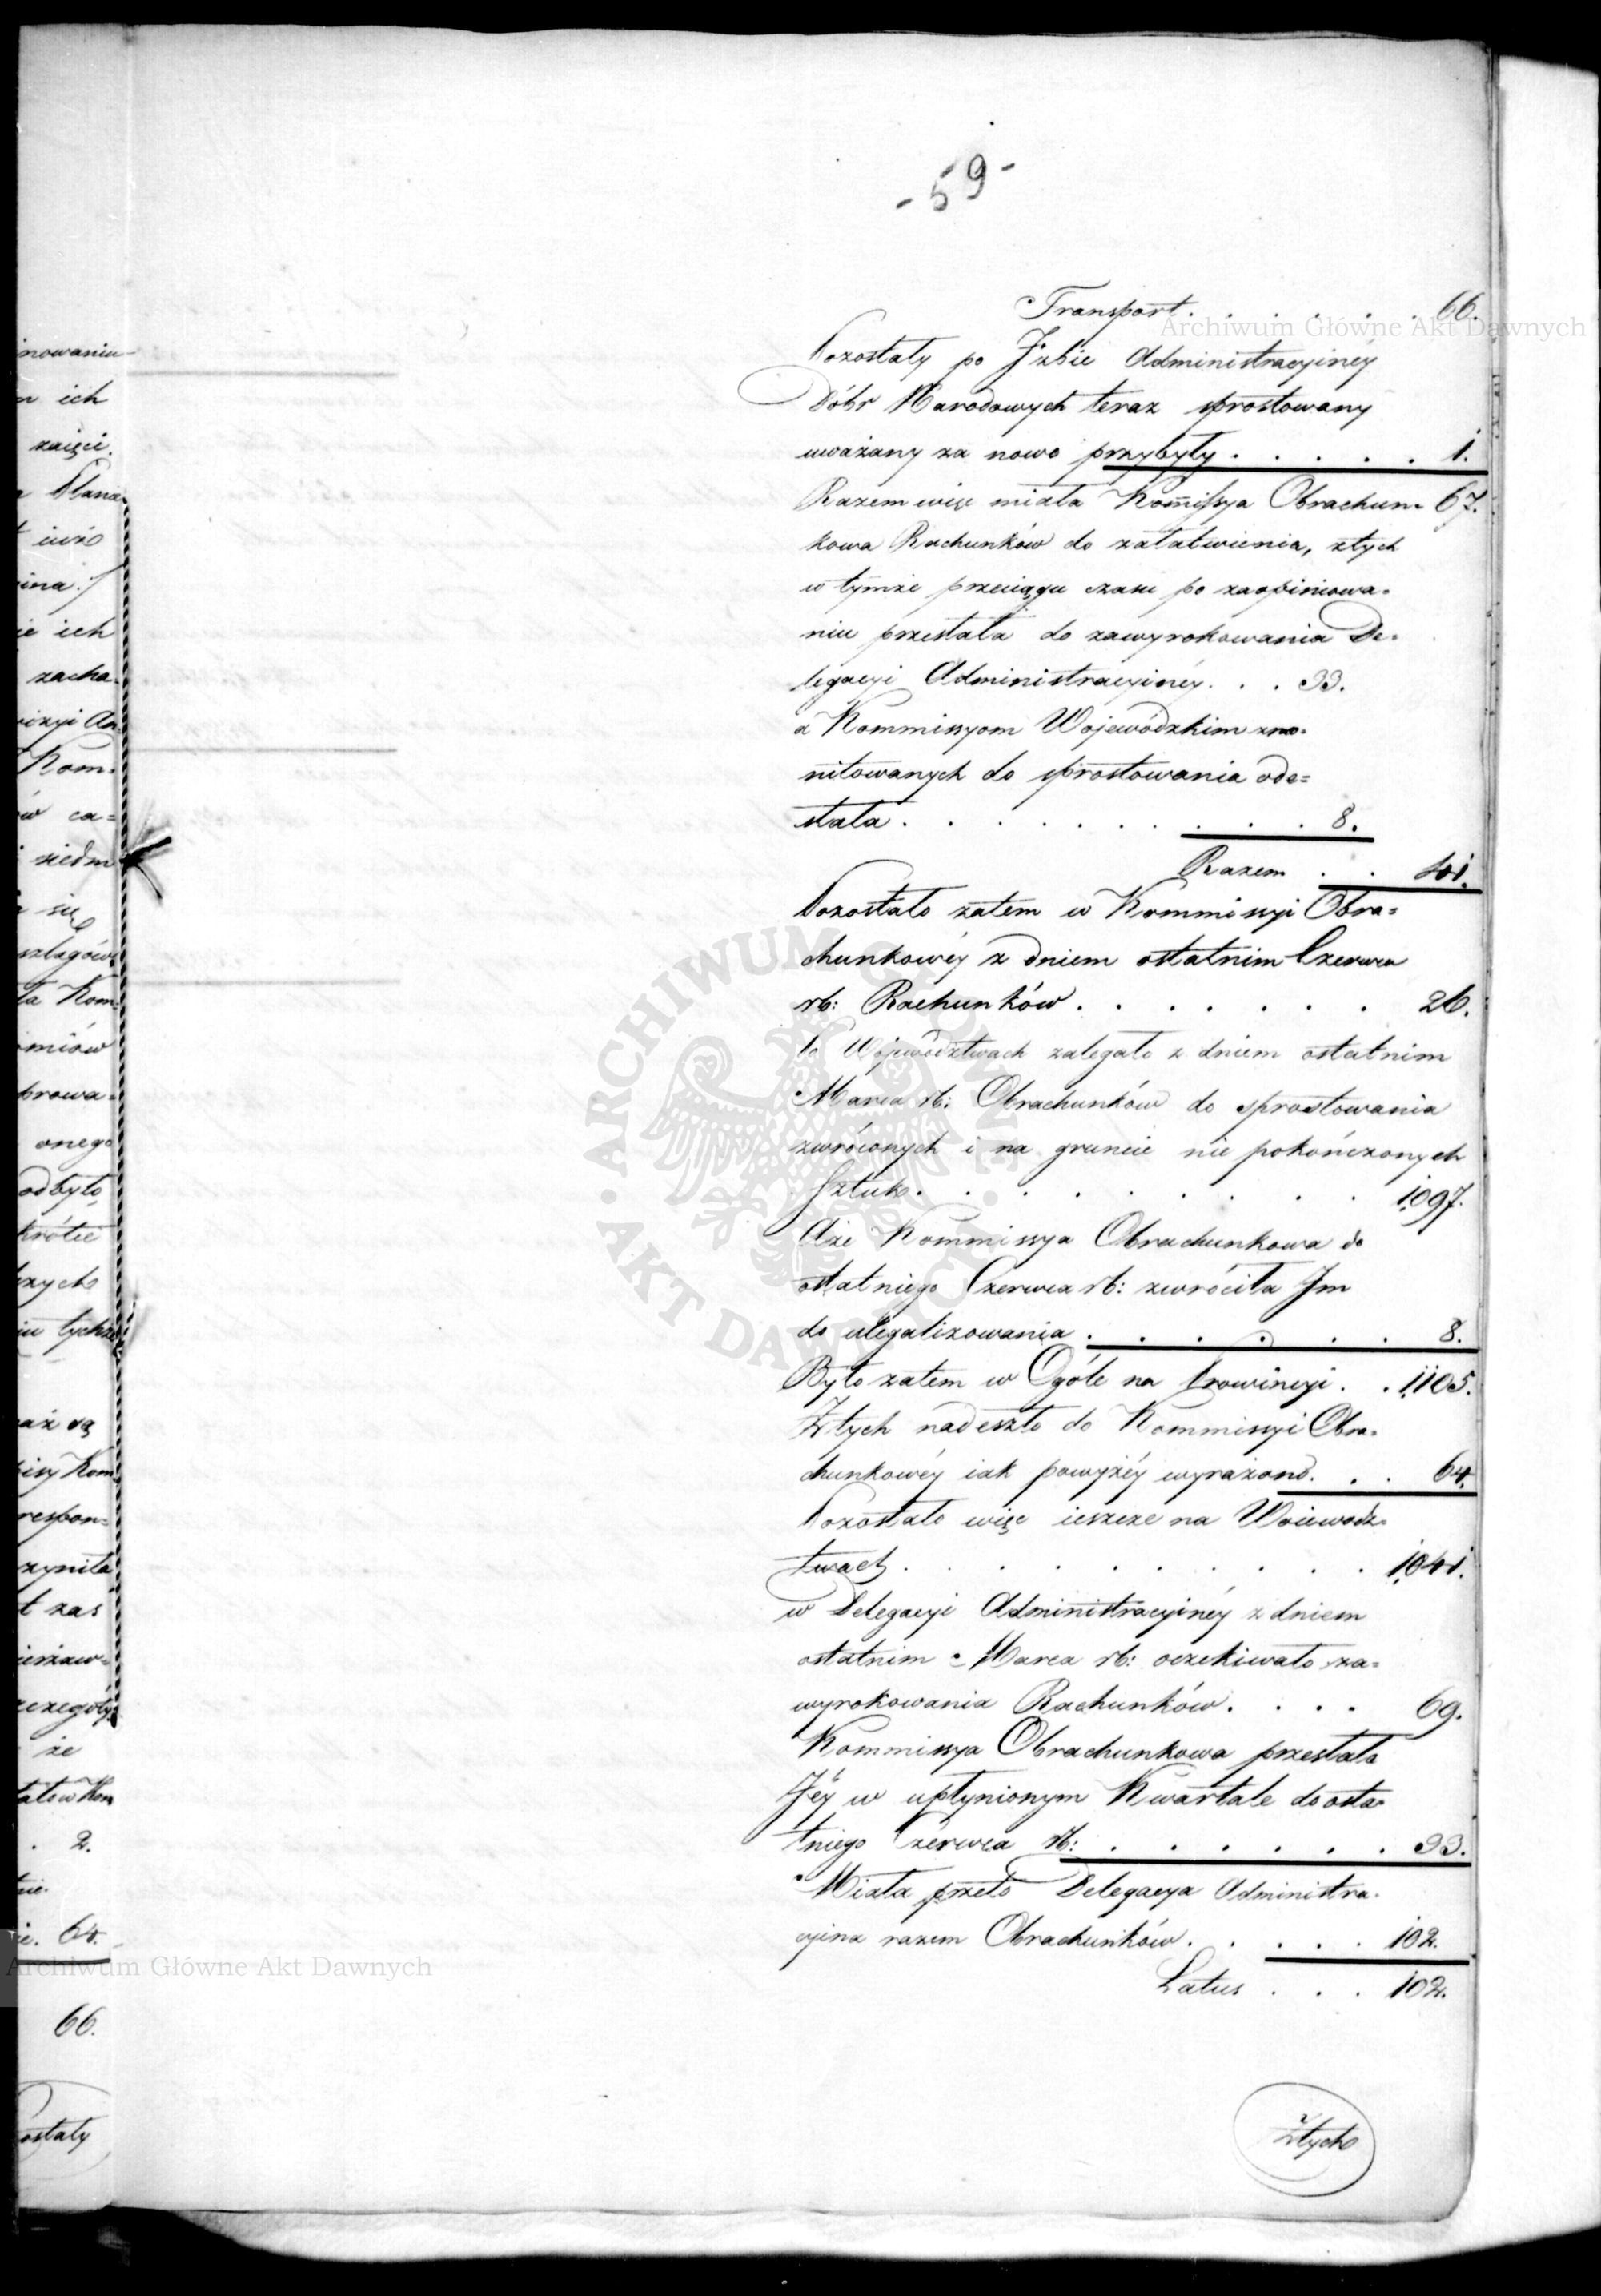 - 59 -
Transport . . . . . . 66.
Pozostały po Jzbie Administracyinéy
Dóbr Narodowych teraz sprostowany
uważany za nowo przybyły . . . . . 1.
Razem więc miała Kommissya Obrachun= 67.
kowa Rachunków do załatwienia, z tych
w tymże przeciągu czasu po zaopiniowa=
niu przesłała do zawyrokowania De=
legacyi Administracyinéy . . . 33.
a Kommissyom Wojewódzkim zmo=
nitowanych do sprostowania ode=
słała . . . . . . . . . . 8.
Razem . . 41.
Pozostało zatem w Kommissyi Obra=
chunkowéy z dniem ostatnim Czerwca
rb: Rachunków . . . . . . . 26.
Po Województwach zalegało z dniem ostatnim
Marca rb: Obrachunków do sprostowania
zwróconych i na gruncie nie pokończonych
Sztuk . . . . . . . . . . 1,097.
Aże Kommissya Obrachunkowa do
ostatniego Czerwca rb: zwróciła Jm
do ulegalizowania . . . . . . 8.
Było zatem w Ogóle na Prowincyi . . 1,105.
Z tych nadeszło do Kommissyi Obra=
chunkowéy iak powyżéy wyrażono . . . 64.
Pozostało więc ieszcze na Woiewodz=
twach . . . . . . . . . . 1,041.
w Delegacyi Administracyinéy z dniem
ostatnim Marca rb: oczekiwało za=
wyrokowania Rachunków . . . . 69.
Kommissya Obrachunkowa przesłała
Jéy w upłynionym Kwartale do osta=
tniego Czerwca rb: . . . . . . 33.
Miała przeto Delegacya Administra=
cyina razem Obrachunków . . . . . 102.
Latus . . . 102.
Z tych
nowaniu
ich
zaięci.
Plana
iuż
ina :/
ie ich
zacha=
Kom=
w ca=
siedm
się
szlagów
ta Kom=
miów
prowa=
onego
odbyło,
krótce
szych
iu tychże
aż są
respon=
zyniła
t zas
że
. 2.
ie. 64.
66.
ostały
Archiwum Główne Akt Dawnych
Archiwum Główne Akt Dawnych
ARCHIWUM GŁÓWNE · AKT DAWNYCH ·